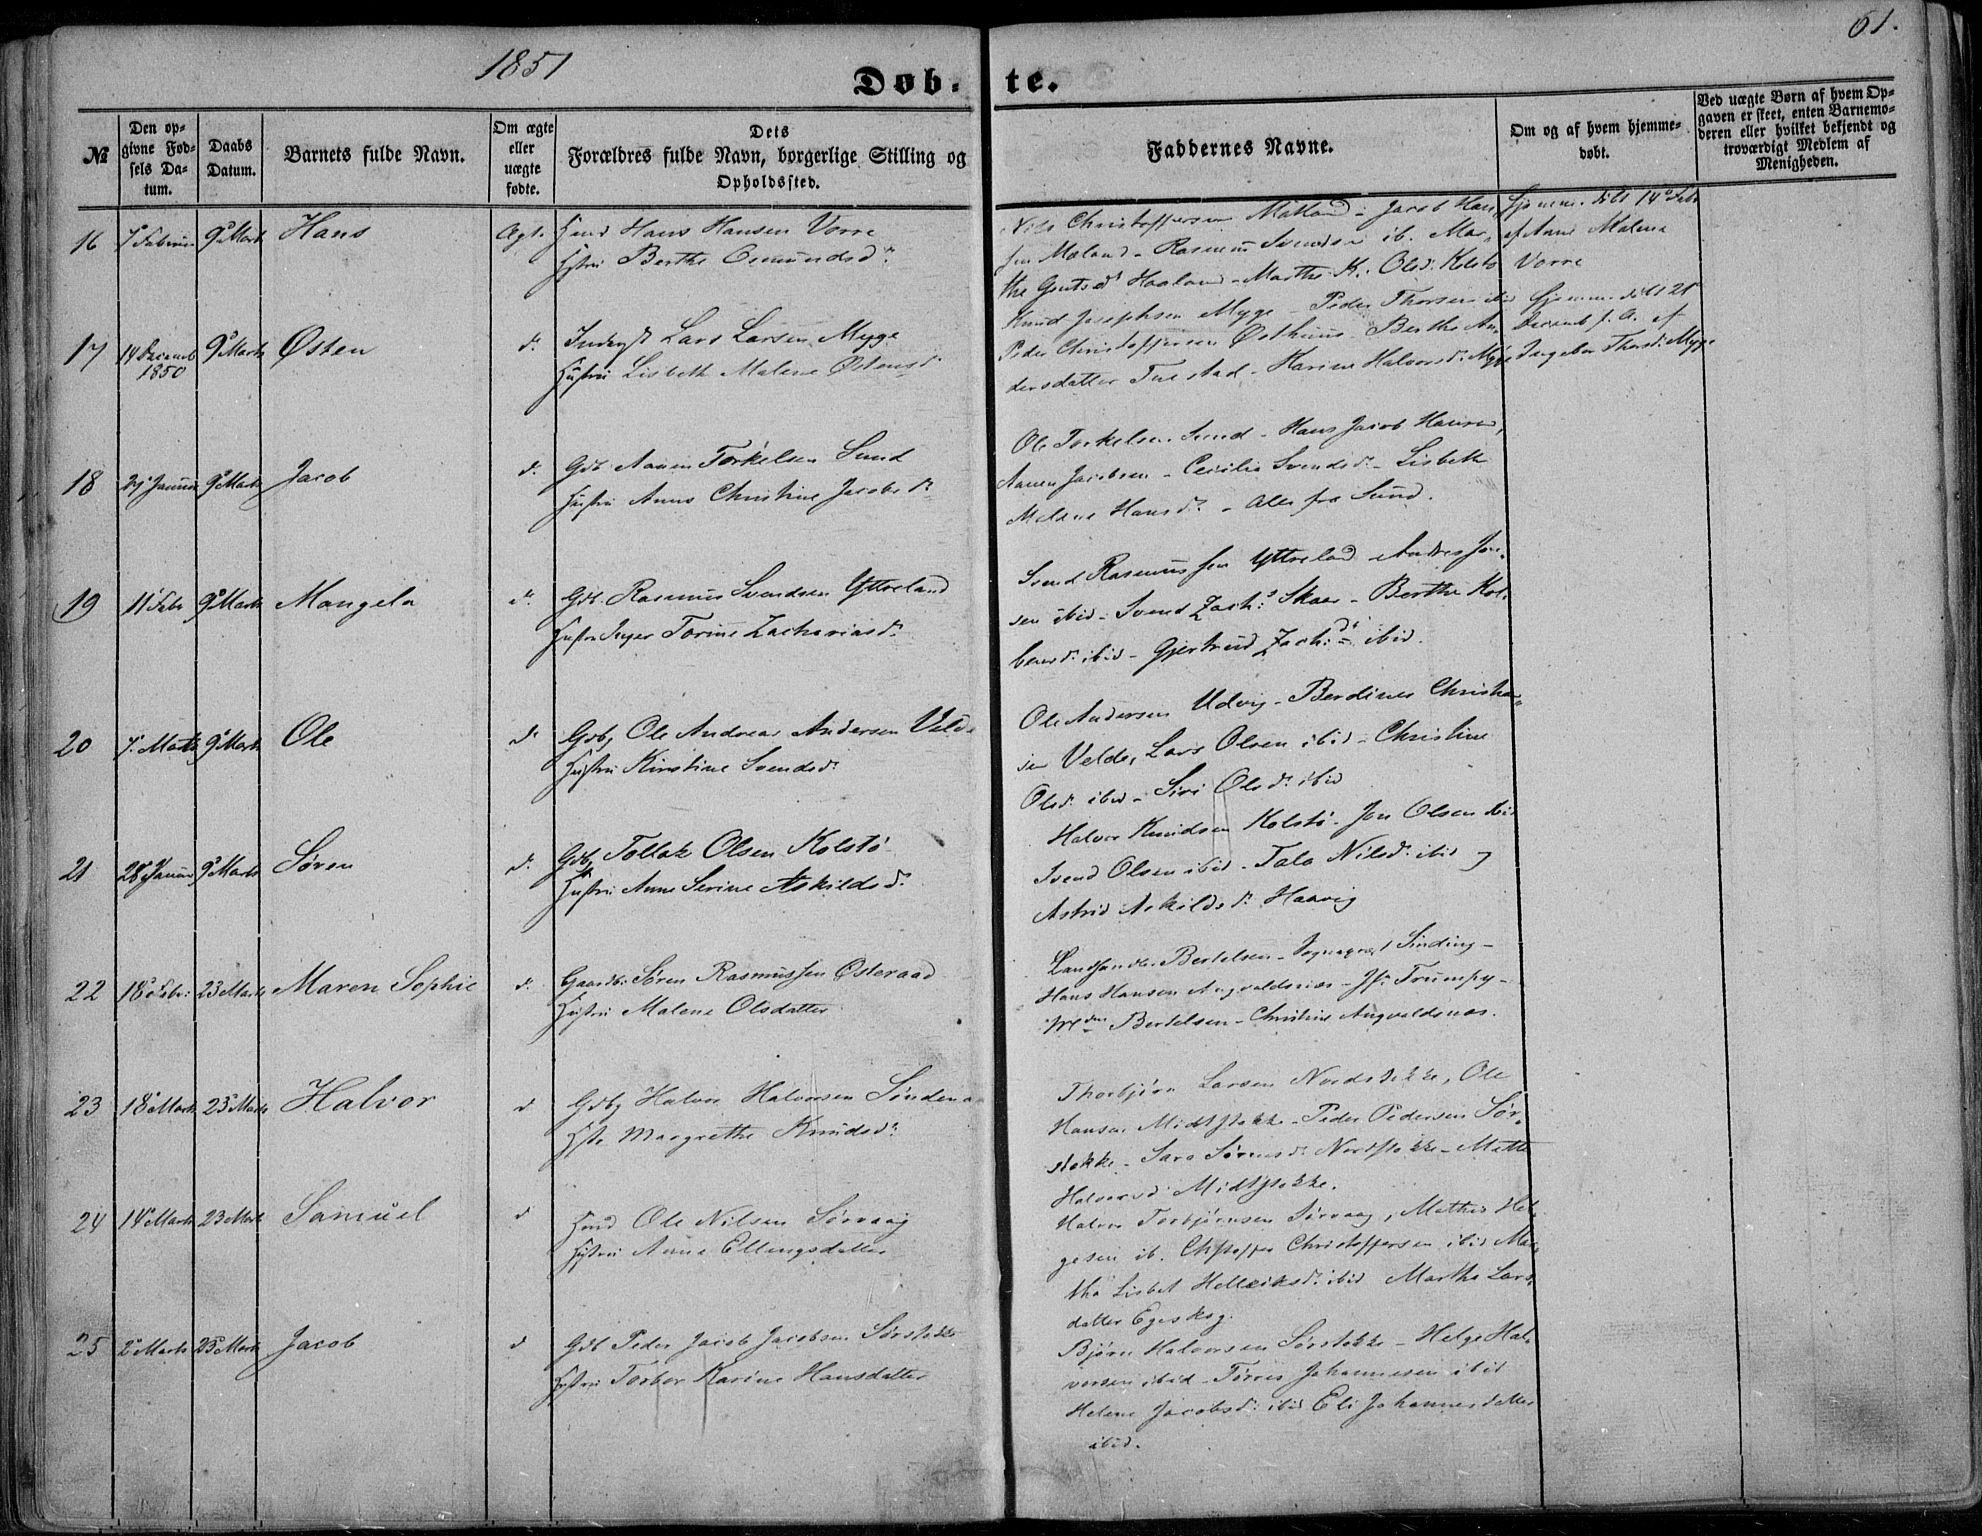 1851
61.
Døb- te.
№
Den opgivne Fødsels Datum.
Daabs Datum.
Barnets fulde Navn.
Om ægte eller uægte fødte.
Dets Forældres fulde Navn, borgerlige Stilling og Opholdssted.
Faddernes Navne.
Om og af hvem hjemmedøbt.
Ved uægte Børn af hvem Opgaven er skeet, enten Barnemoderen eller hvilket bekjendt og troværdigt Medlem af Menigheden.
16 7 Februar 9 Marts Hans Ægt.
Hmd Hans Hansen Vorre
Hustru Berthe Osmundsd.
Nils Christoffersen Mæland - Jacob Han
sen Mæland - Rasmus Svendsen ib. Mar
the Haaland - Marthe K. Olsd. Kolstø
Hjemme døbt 14 Feb
af Anne Malene
Vorre
17 14 Decemb 1850 9 Marts Østen d.
Lars Larsen Mygge
Hustru Lisbeth Malene Østensd.
Knud Josephsen Mygge - Peder Thorsen ibid
Peder Christoffersen Østhuus - Berthe An
dersdatter Tuestad - Karine Halvorsd. Mygge
Hjemme døbt 21
Decemb f. A. af
Ingebor Thorsd. Mygge
18 Januar 9 Marts Jacob d.
Gdb Aanen Torkelsen Sund
Hustru Anne Christine Jacobsd.
Ole Torkelsen Sund - Hans Jacob Hansen,
Aanen Jacobsen - Cecilie Svendsd. - Lisbeth
Malene Hansd. - Alle fra Sund.
19 11 Febr 9 Marts Mangela d.
Gdb. Rasmus Svendsen Yttreland
Hustru Inger Torine Zachariasd.
Svend Rasmussen Yttreland Andreas Jen
sen ibid - Svend Zach: Skaar - Berthe Kol
bensd. ibid - Gjertrud Zach: d. ibid.
20 7. Marts 9 Marts Ole d.
Gdb. Ole Andreas Andersen Velde
Hustru Kirstine Svendsd.
Ole Andersen Udvig - Berdines Christian
sen Velde, Lars Olsen ibid - Christine
Olsd. ibid - Siri Olsd. ibid
21 28 Januar 9 Marts Søren d.
Gdb. Tollak Olsen Kolstø
Hustru Anne Serine Askildsd.
Halvor Knudsen Kolstø - Jon Olsen ibid
Svend Olsen ibid - Tala Nilsd. ibid
Astrid Askildsd. Haavig
22 18 Febr: 23 Marts Maren Sophie d.
Gaardb: Søren Rasmussen Østeraad
Hustru Malene Olsdatter
Landhandler Bertelsen - Sognepræst Sinding -
Hans Hansen Augvaldsnæs - Jf. Trumpy -
Bertelsen - Christine Augvaldsnæs.
23 18 Marts 23 Marts Halvor d
Gdb Halvor Halvorsen Søndenaa
Hst. Margrethe Knudsd.
Thorbjørn Larsen Nordstokke, Ole
Hansen Midtstokke - Peder Pedersen Sør
stokke - Sara Sørensd. Nordstokke - Mette
Halvorsd Midtstokke.
24 14 Marts 23 Marts Samuel d
Hmd Ole Nilsen Sørvaag
Hustru Anne Ellingsdatter
Halvor Torbjørnsen Sørvaag, Mathis Hel
gesen ib. Christoffer Christoffersen ibid Mar
tha Lisbet Helleiksd. ibid Martha Lars
datter Egeskog.
25 2 Marts 23 Marts Jacob d
Gdb Peder Jacob Jacobsen Sørstokke
Hustru Torbor Karine Hansdatter
Bjørn Halvorsen Sørstokke - Helge Hal
vorsen ibid - Tørres Johannesen ibid
Helene Jacobsd. ibid Eli Johannesdatter
ibid.